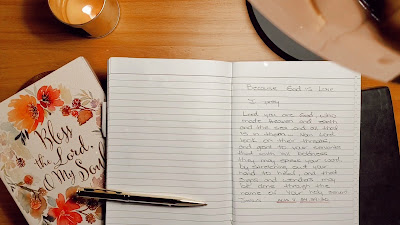 Bless
the Lord,
O My Soul
Because God is Love
I pray
Lord you are God, who
made heaven and earth
and the sea and all that
is in them... Now Lord
look on their threats,
and grant to your servants
that with all boldness
they may speak your word,
by stretching out your
hand to heal, and that
signs and wonders may
be done through the
name of your holy servant
Jesus. Acts 4: